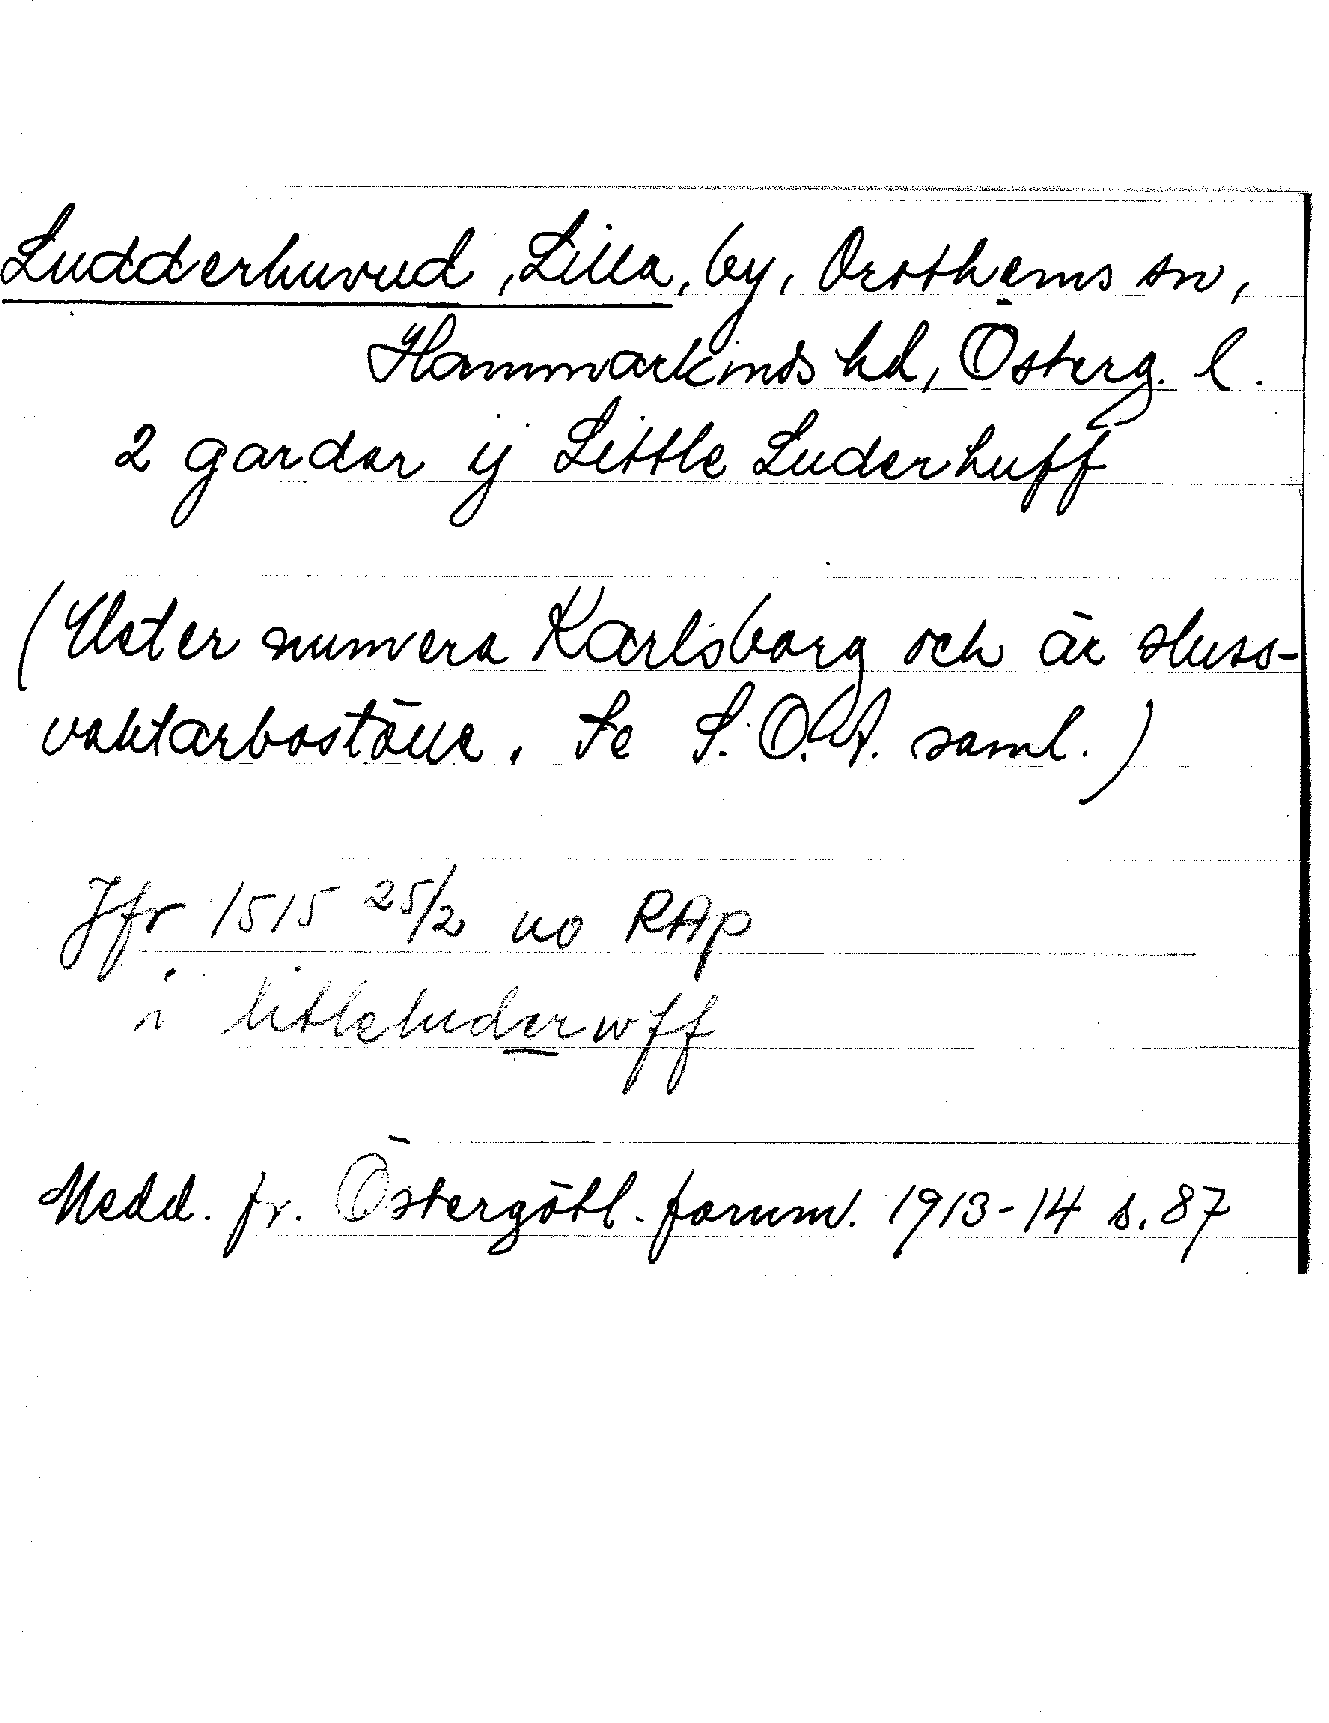 Ludderhuvud, Lilla, by, Östhems sn,
Hammarkinds hd, Österg. l.
2 gardar ij Little Luderhuff
(Heter numera Karlsborg och är sluss-
vaktarboställe. Se S.O.A. saml.)
Jfr 1515 25/2 uo RAp
i litleluderwff
Medd. fr. Östergötl. fornm. 1913-14 s. 87